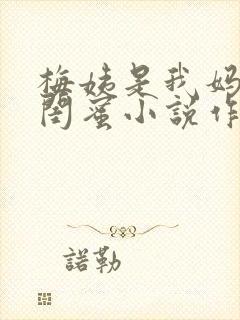 梅姨是我妈
闺蜜小说作
諾勒